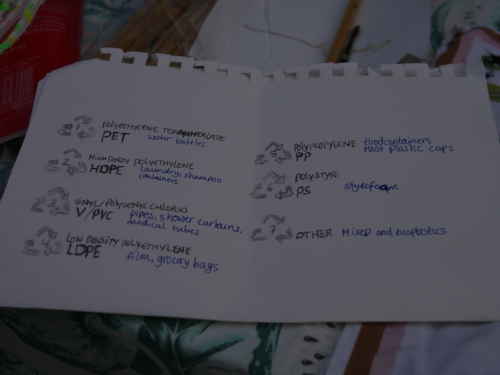 1 POLYETHYLENE
PET water bottles
2 HIGH DENSITY POLYETHYLENE
HDPE laundry, shampoo
containers
3 VINYL/POLYVENYL CHLORID
V/PVC pipes, shower curtains,
medical tubes
4 LOW DENSITY POLYETHYLENE
LDPE film, grocery bags
5 POLYPROPYLENE foodcontainers
PP most plastic caps
6 POLYSTYRE
PS styrofoam
7 OTHER Mixed and bioplastics